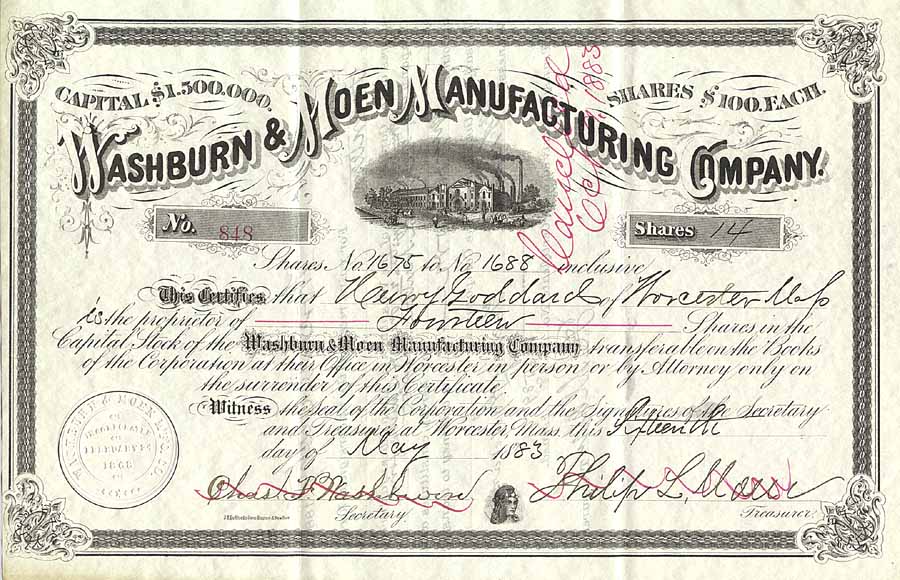 CAPITAL $1.500.000.
SHARES $100. EACH.
WASHBURN & MOEN MANUFACTURING COMPANY.
Cancelled
1883
No. 848
Shares 14
Shares No. 1675 to No 1688 inclusive
This Certifies that Henry Goddard of Worcester Mass
is the proprietor of Fourteen Shares in the
Capital Stock of the Washburn & Moen Manufacturing Company transferable on the Books
of the Corporation at their Office in Worcester in person or by Attorney only on
the surrender of this Certificate
Witness the seal of the Corporation and the Signatures of the Secretary
and Treasurer at Worcester, Mass. this Fifteenth
day of May 1883
Chas. F. Washburn
Secretary.
Philip L. Moen
Treasurer.
WASHBURN & MOEN MFG. CO.
INCORPORATED
FEBRUARY
1868